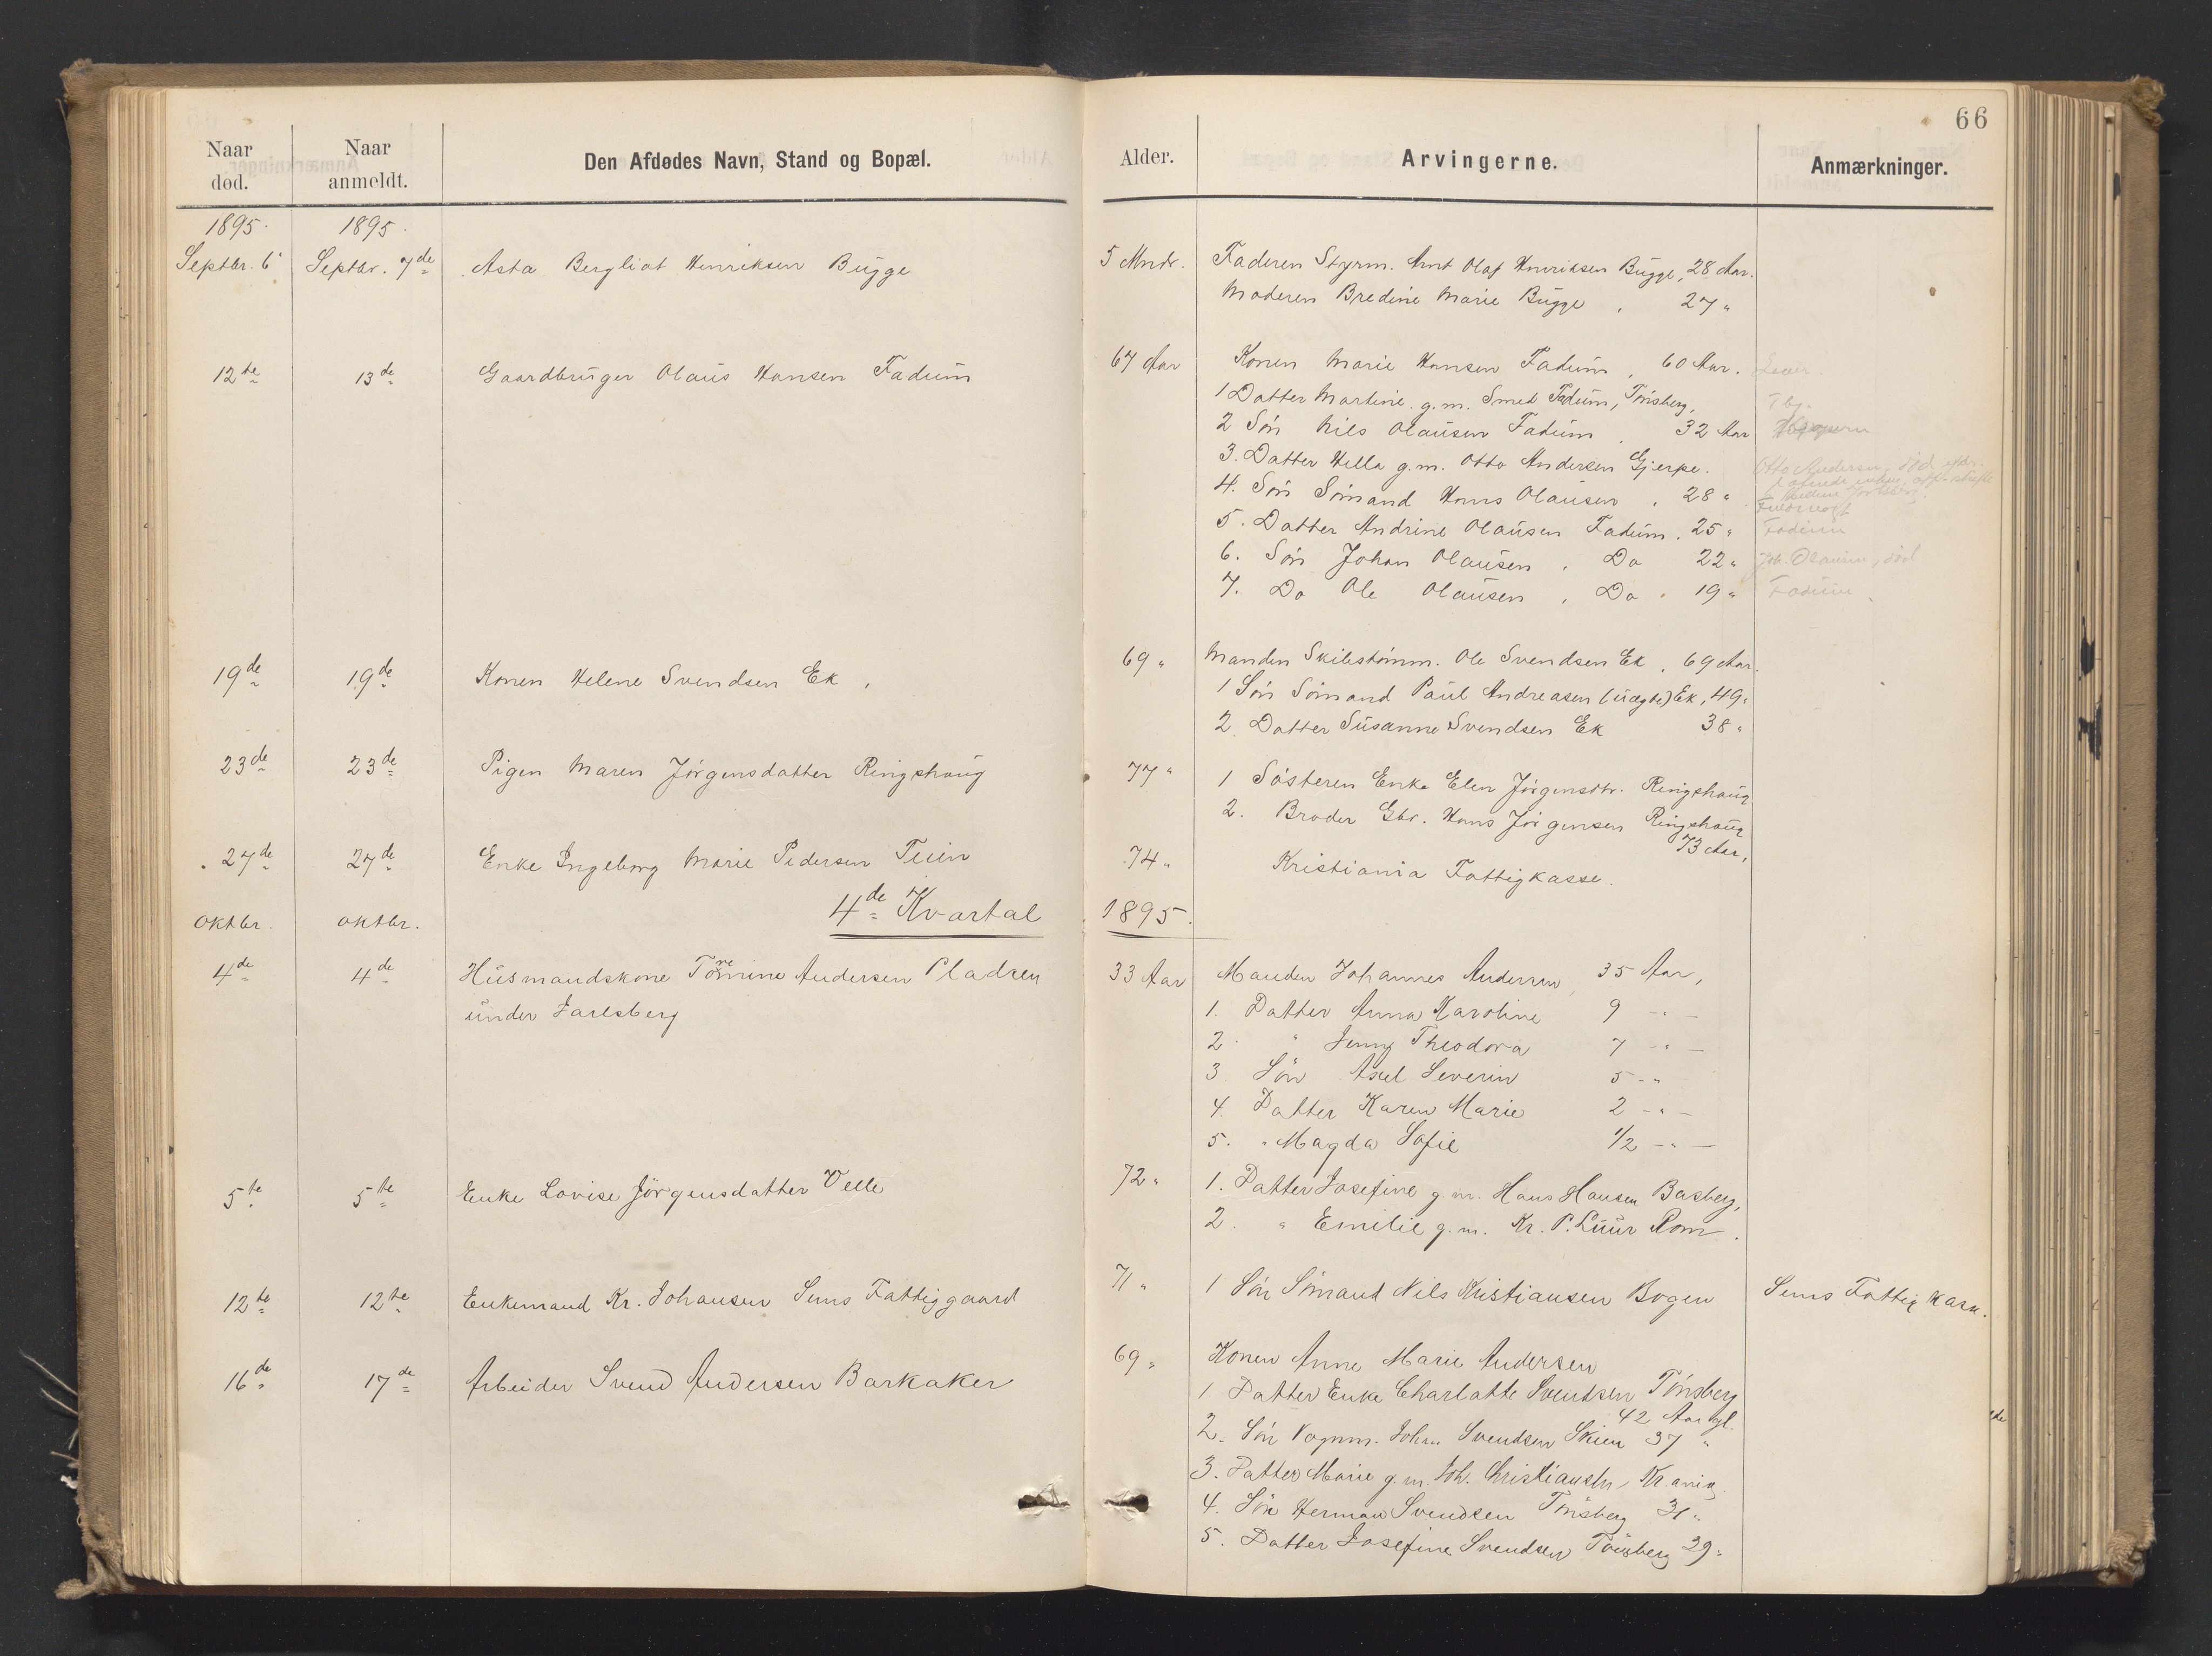 66
Naar død.
Naar anmeldt.
Den Afdødes Navn, Stand og Bopæl.
Alder.
Arvingerne.
Anmærkninger.
1895. 1895.
Septbr. 6 Septbr. 7de Asta Bergliot Henriksen Bugge 5 Mndr. Faderen Styrm. Arnt Olaf Henriksen Bugge, 28 Aar.
Moderen Bredine Marie Bugge, 27 "
12te 13de Gaardbruger Olaus Hansen Fadum 67 Aar Konen Marie Hansen Fadum, 60 Aar. Lever.
1 Datter Martine g.m. Smed Fadum, Tönsberg, Tbg.
2 Sön Nils Olausen Fadum, 32 Aar
3. Datter Hella g.m. Otto Andersen Gjerpe. Otto Andersen, död
4. Sön Sömand Hans Olausen, 28 "
5. Datter Andrine Olausen Fadum, 25 " Fadum
6. Sön Johan Olausen, Do 22 " Joh. Olausen, död
7. Do Ole Olausen, Do 19 " Fadum
19de 19de Konen Helene Svendsen Ek, 69 " Manden Skibstömm. Ole Svendsen Ek, 69 Aar.
1 Sön Sömand Paul Andreasen (uægte) Ek, 49 "
2. Datter Susanne Svendsen Ek 38 "
23de 23de Pigen Maren Jörgensdatter Ringshaug 77 " 1 Sösteren Enke Elen Jörgensdtr. Ringshaug
2. Broder Gbr. Hans Jörgensen Ringshaug
73 Aar,
27de 27de Enke Ingeborg Marie Pedersen Teien 74 " Kristiania Fattigkasse.
4de Kvartal 1895.
Oktbr. Oktbr.
4de 4de Husmandskone Andersen Pladsen 33 Aar Manden Johannes Andersen, 35 Aar,
under Jarlsberg
1. Datter Anna Karoline 9 - " -
2. " Jenny Theodora 7 - " -
3 Sön Axel Severin 5 - "
4. Datter Karen Marie 2 - " -
5. " Magda Sofie 1/2 - " -
5te 5te Enke Lovise Jörgensdatter Velle 72 " 1. Datter Josefine g.m. Hans Hansen Basberg,
2. " Emilie g.m. Kr. P. Luur Rom.
12te 12te Enkemand Kr. Johansen Sems Fattiggaard 71 " 1 Sön Sömand Nils Kristiansen Bogen Sems Fattigkasse.
16de 17de Arbeider Svend Andersen Barkaker 69 " Konen Anne Marie Andersen
1. Datter Enke Charlotte Svendsen Tönsberg
42 Aar gl.
2. Sön Vognm. Johan Svendsen Skien 37 "
3. Datter Marie g.m. Joh. Christiansen, Kr.ania.
4. Sön Herman Svendsen Tönsberg 31 "
5. Datter Josefine Svendsen Tönsberg 29 "